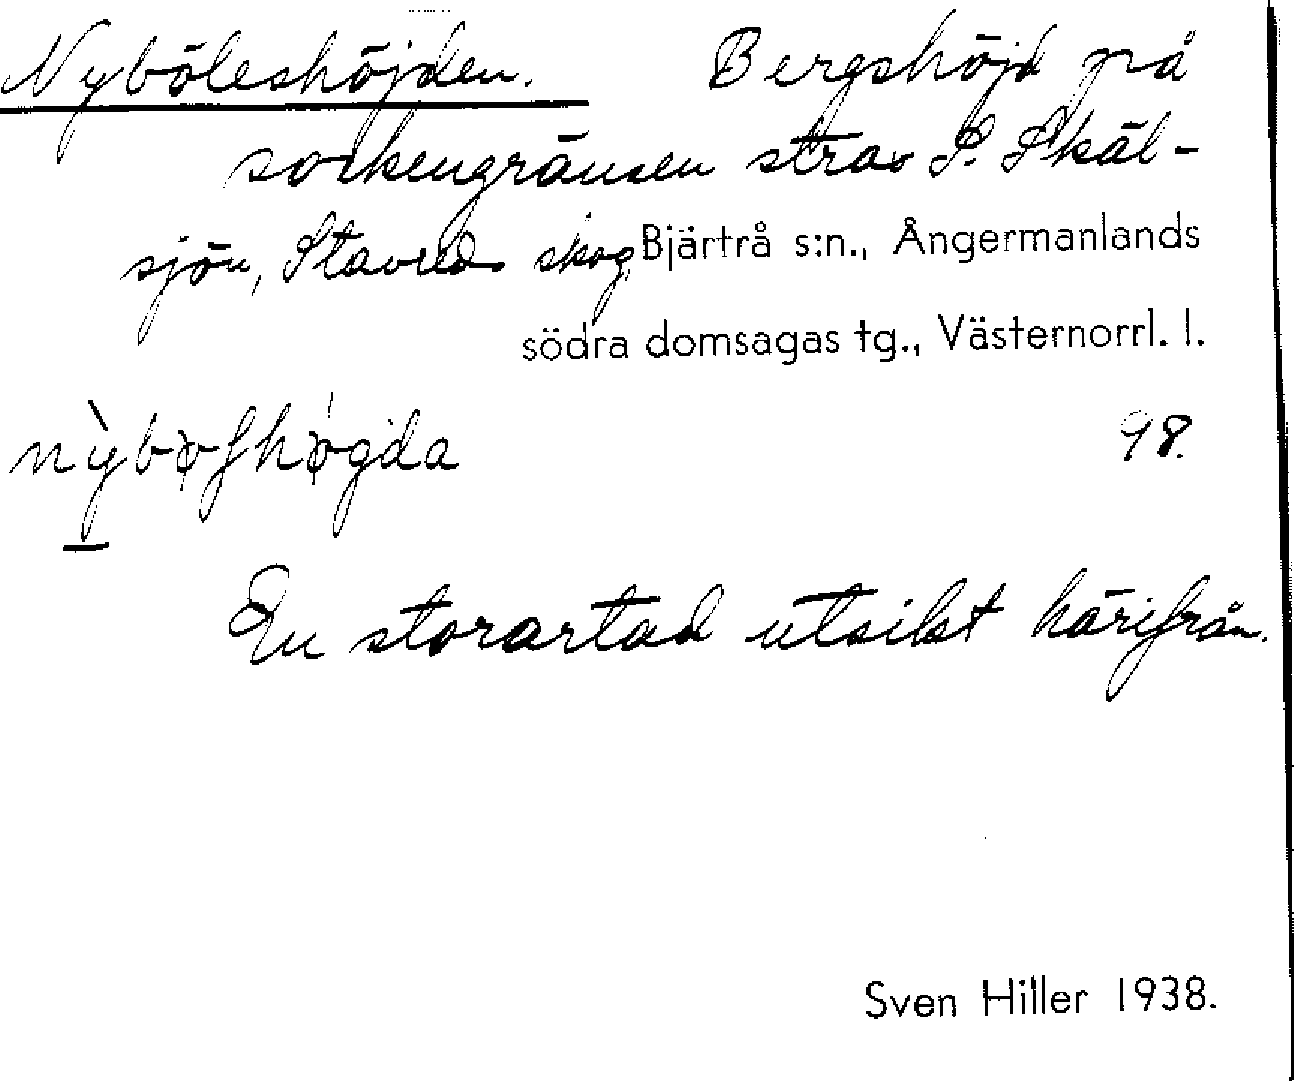 Nyböleshöjden. Bergshöjd på
sockengränsen strax S. Skäl-
sjön, Stavreds skog, Bjärtrå s:n., Ångermanlands
södra domsagas tg., Västernorrl. l.
98.
En storartad utsikt härifrån.
Sven Hiller 1938.